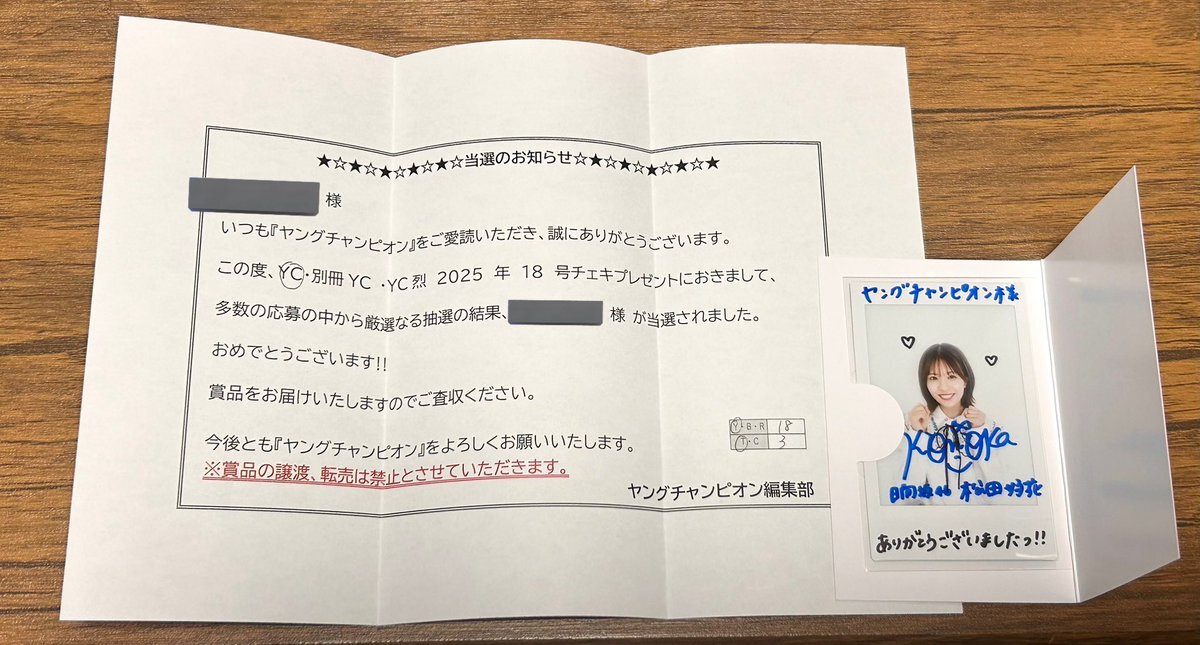 ★☆★☆★☆★☆★☆当選のお知らせ☆★☆★☆★☆★☆★
様
いつも『ヤングチャンピオン』をご愛読いただき、誠にありがとうございます。
この度、YC・別冊YC ・YC烈 2025 年 18 号チェキプレゼントにおきまして、
多数の応募の中から厳選なる抽選の結果、 様 が当選されました。
おめでとうございます!!
賞品をお届けいたしますのでご査収ください。
今後とも『ヤングチャンピオン』をよろしくお願いいたします。
※賞品の譲渡、転売は禁止とさせていただきます。
Y・B・R 18
T・C 3
ヤングチャンピオン編集部
ヤングチャンピオン様
KONOKA
日向坂46 松田好花
ありがとうございましたっ!!